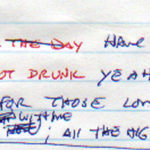 THE DAY HAVE
OT DRUNK YEAH
FOR THOSE LON
WITH ME
; ALL THE NIG